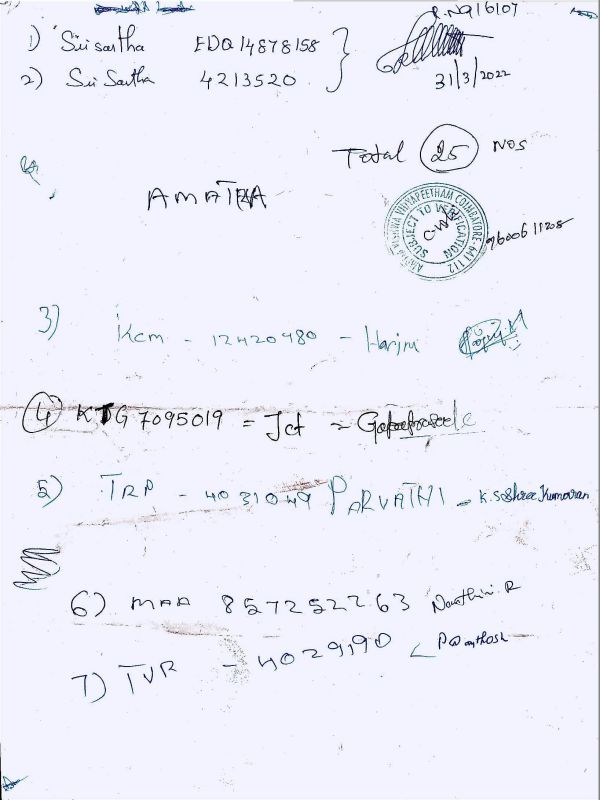 R.No 16107
1) Srisastha EDQ 14878158
2) Sri Sastha 4213520
31/3/2022
Total 25 NOS
AMRITA
AMRITA VISHWA VIDYAPEETHAM COIMBATORE - 641 112
SUBJECT TO VERIFICATION
9600611208
3) Kcm - 12420480 - Harini
4) KTG 7095019 = Jct =
5) TRP - 4031049 PARVATHI - K. Soshree Kumaran
6) MAA 8572522263 R
7) TVR - 4029190